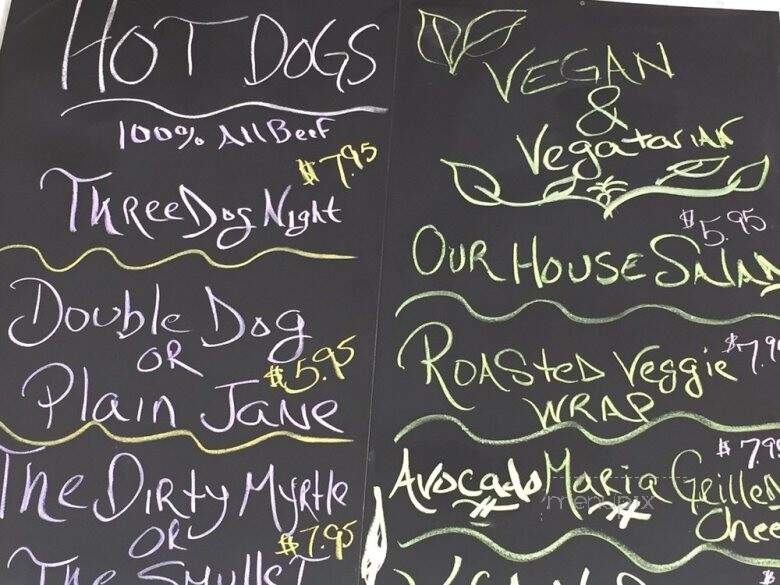 HOT DOGS
100% All Beef
$7.95
Three Dog Night
Double Dog
OR
$5.95
Plain Jane
The Dirty Myrtle
OR
$7.95
The
VEGAN
&
Vegatarian
$5.95
Our House Salad
Roasted Veggie $7.9
WRAP
$7.95
Avocado Maria Grilled
Chee
menupix